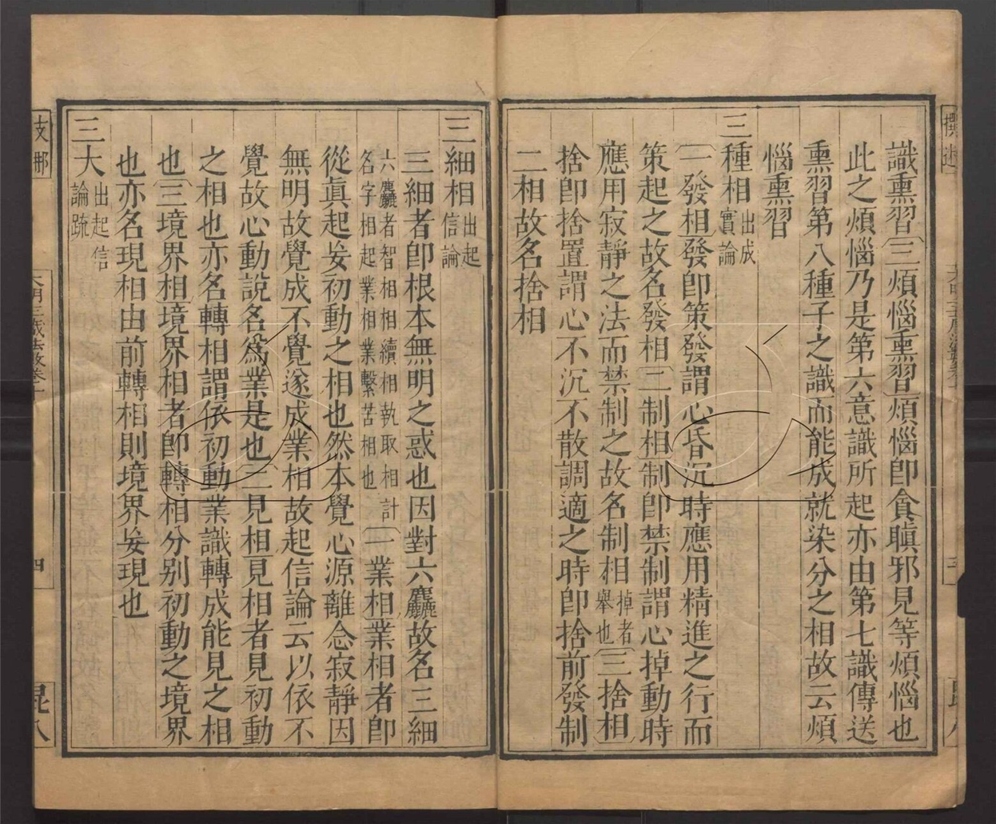 識熏習〔三煩惱熏習〕煩惱卽貪瞋邪見等煩惱也
此之煩惱乃是第六意識所起亦由第七識傳送
熏習第八種子之識而能成就染分之相故云煩
惱熏習
三種相出成實論
〔一發相〕發卽策發謂心昏沉時應用精進之行而
策起之故名發相〔二制相〕制卽禁制謂心掉動時
應用寂靜之法而禁制之故名制相掉者舉也〔三捨相〕
捨卽捨置謂心不沉不散調適之時卽捨前發制
二相故名捨相
三細相出起信論
三細者卽根本無明之惑也因對六麤故名三細
六麤者智相相續相執取相計名字相起業相業繫苦相也〔一業相〕業相者卽
從眞起妄初動之相也然本覺心源離念寂靜因
無明故覺成不覺遂成業相故起信論云以依不
覺故心動說名爲業是也〔二見相〕見相者見初動
之相也亦名轉相謂依初動業識轉成能見之相
也〔三境界相〕境界相者卽轉相分别初動之境界
也亦名現相由前轉相則境界妄現也
三大出起信論疏
大明三藏法數卷一
四
昆八